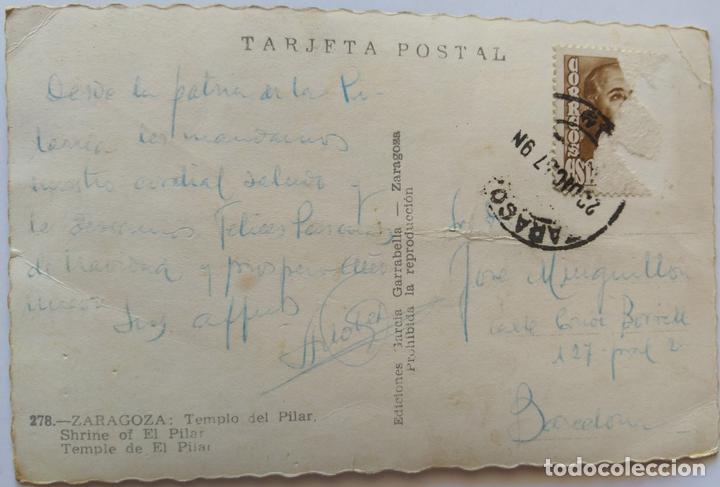 TARJETA POSTAL
Desde la patria de la Pi-
larica les mandamos
nuestro cordial saludo y
le deseamos Felices Pascuas
de Navidad y prospero Año
nuevo
Sus affmos
CORREOS
ZARAGOZA
José Minguillon
calle Conde Borrell
127 pral 2
Barcelona
Ediciones García Garrabella — Zaragoza
Prohibida la reproducción
278.—ZARAGOZA: Templo del Pilar.
Shrine of El Pilar
Temple de El Pilar
todocoleccion
todocoleccion.net